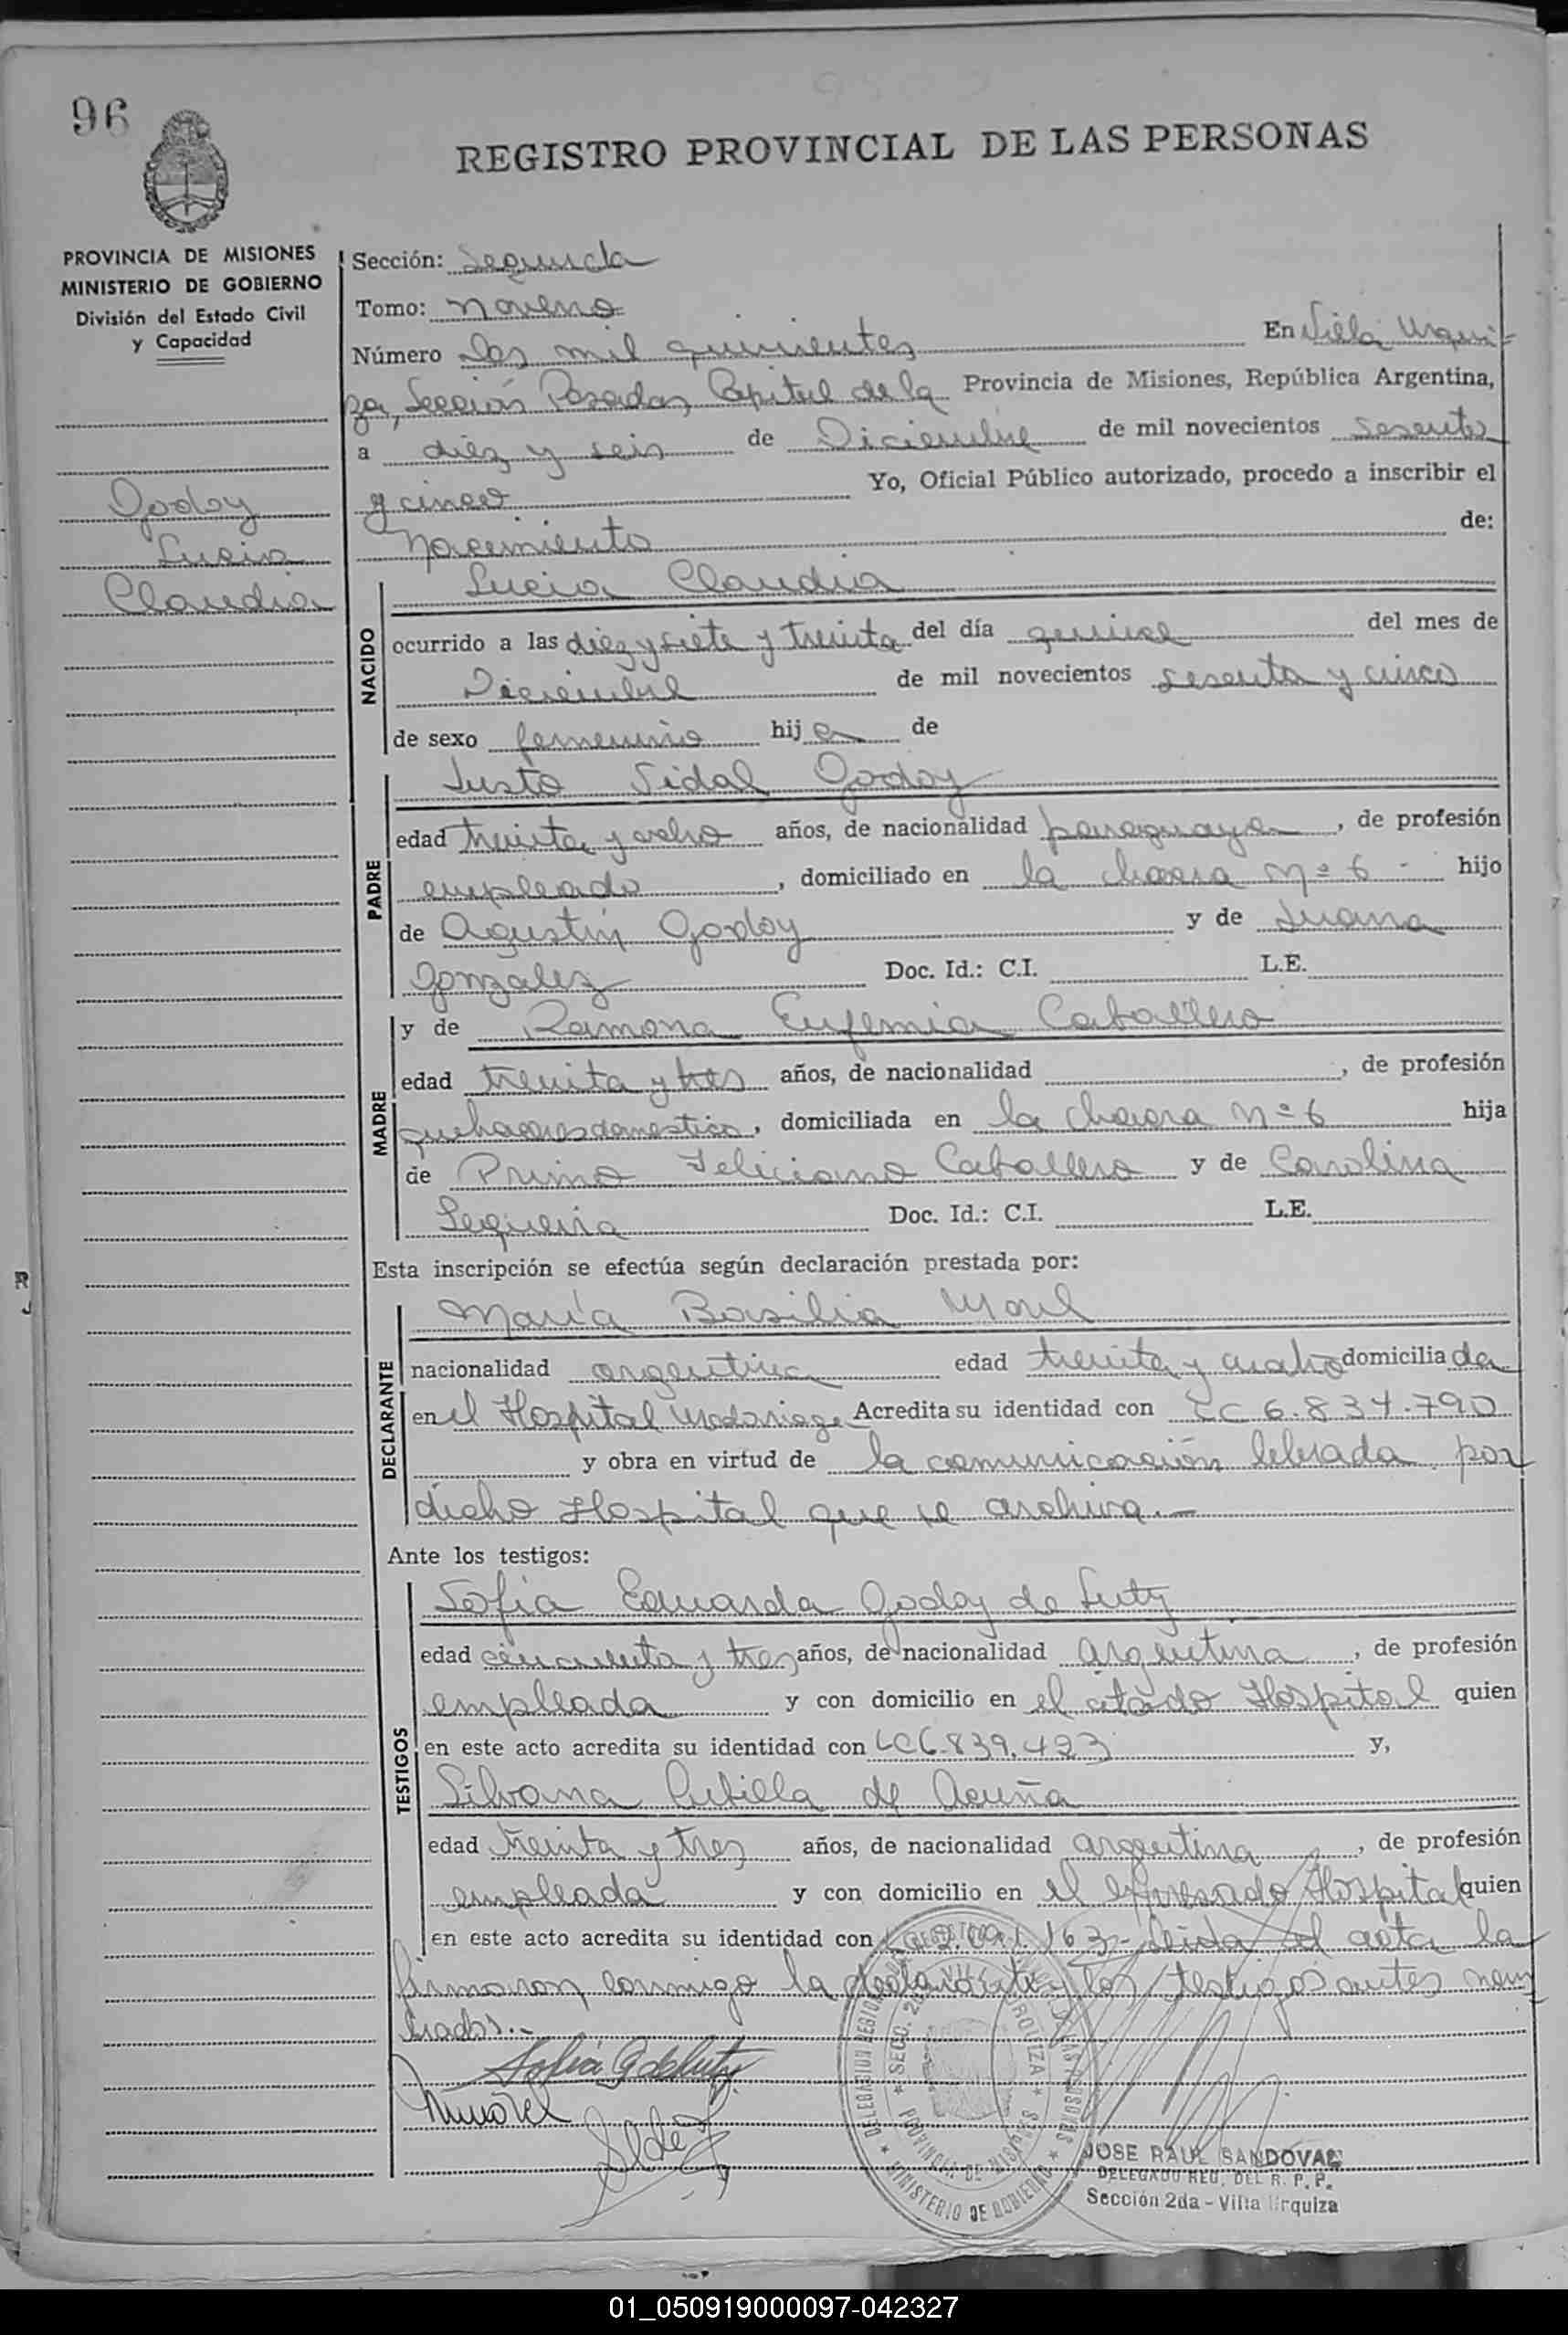 96
REGISTRO PROVINCIAL DE LAS PERSONAS
PROVINCIA DE MISIONES
MINISTERIO DE GOBIERNO
División del Estado Civil
y Capacidad
Godoy
Lucia
Claudia
Sección: Segunda
Tomo: Noveno
Número Dos mil quinientos En Villa Urqui-
za, Sección Posadas, Capital de la Provincia de Misiones, República Argentina,
a diez y seis de Diciembre de mil novecientos sesenta
y cinco Yo, Oficial Público autorizado, procedo a inscribir el
nacimiento de:
NACIDO
Lucia Claudia
ocurrido a las diez y siete y treinta del día quince del mes de
Diciembre de mil novecientos sesenta y cinco
de sexo femenino hija de
PADRE
Justo Vidal Godoy
edad treinta y ocho años, de nacionalidad paraguaya, de profesión
empleado, domiciliado en la chacra Nº 6 - hijo
de Agustín Godoy y de Juana
Gonzalez Doc. Id.: C.I. L.E.
MADRE
y de Ramona Eufemia Caballero
edad treinta y tres años, de nacionalidad , de profesión
quehaceres domestico, domiciliada en la chacra Nº 6 hija
de Primo Feliciano Caballero y de Carolina
Sequeira Doc. Id.: C.I. L.E.
Esta inscripción se efectúa según declaración prestada por:
DECLARANTE
María Basilia Morel
nacionalidad argentina edad treinta y ocho domiciliada
en el Hospital Madariaga Acredita su identidad con LC 6.834.790
y obra en virtud de la comunicación librada por
dicho Hospital que se archiva.-
Ante los testigos:
TESTIGOS
Sofia Eduarda Godoy de Luty
edad cincuenta y tres años, de nacionalidad argentina, de profesión
empleada y con domicilio en el citado Hospital quien
en este acto acredita su identidad con LC 6.839.423 y,
Silvana Cubilla de Acuña
edad treinta y tres años, de nacionalidad argentina, de profesión
empleada y con domicilio en el expresado Hospital quien
en este acto acredita su identidad con 163- Leida el acta la
firmaron conmigo la declarante y los testigos antes nom
brados.-
Sofia G de Luty
DELEGACION REGIONAL
SECC. 2da. VILLA URQUIZA
PROVINCIA DE MISIONES
MINISTERIO DE GOBIERNO
JOSE RAUL SANDOVAL
DELEGADO REG. DEL R. P. P.
Sección 2da - Villa Urquiza
01_050919000097-042327